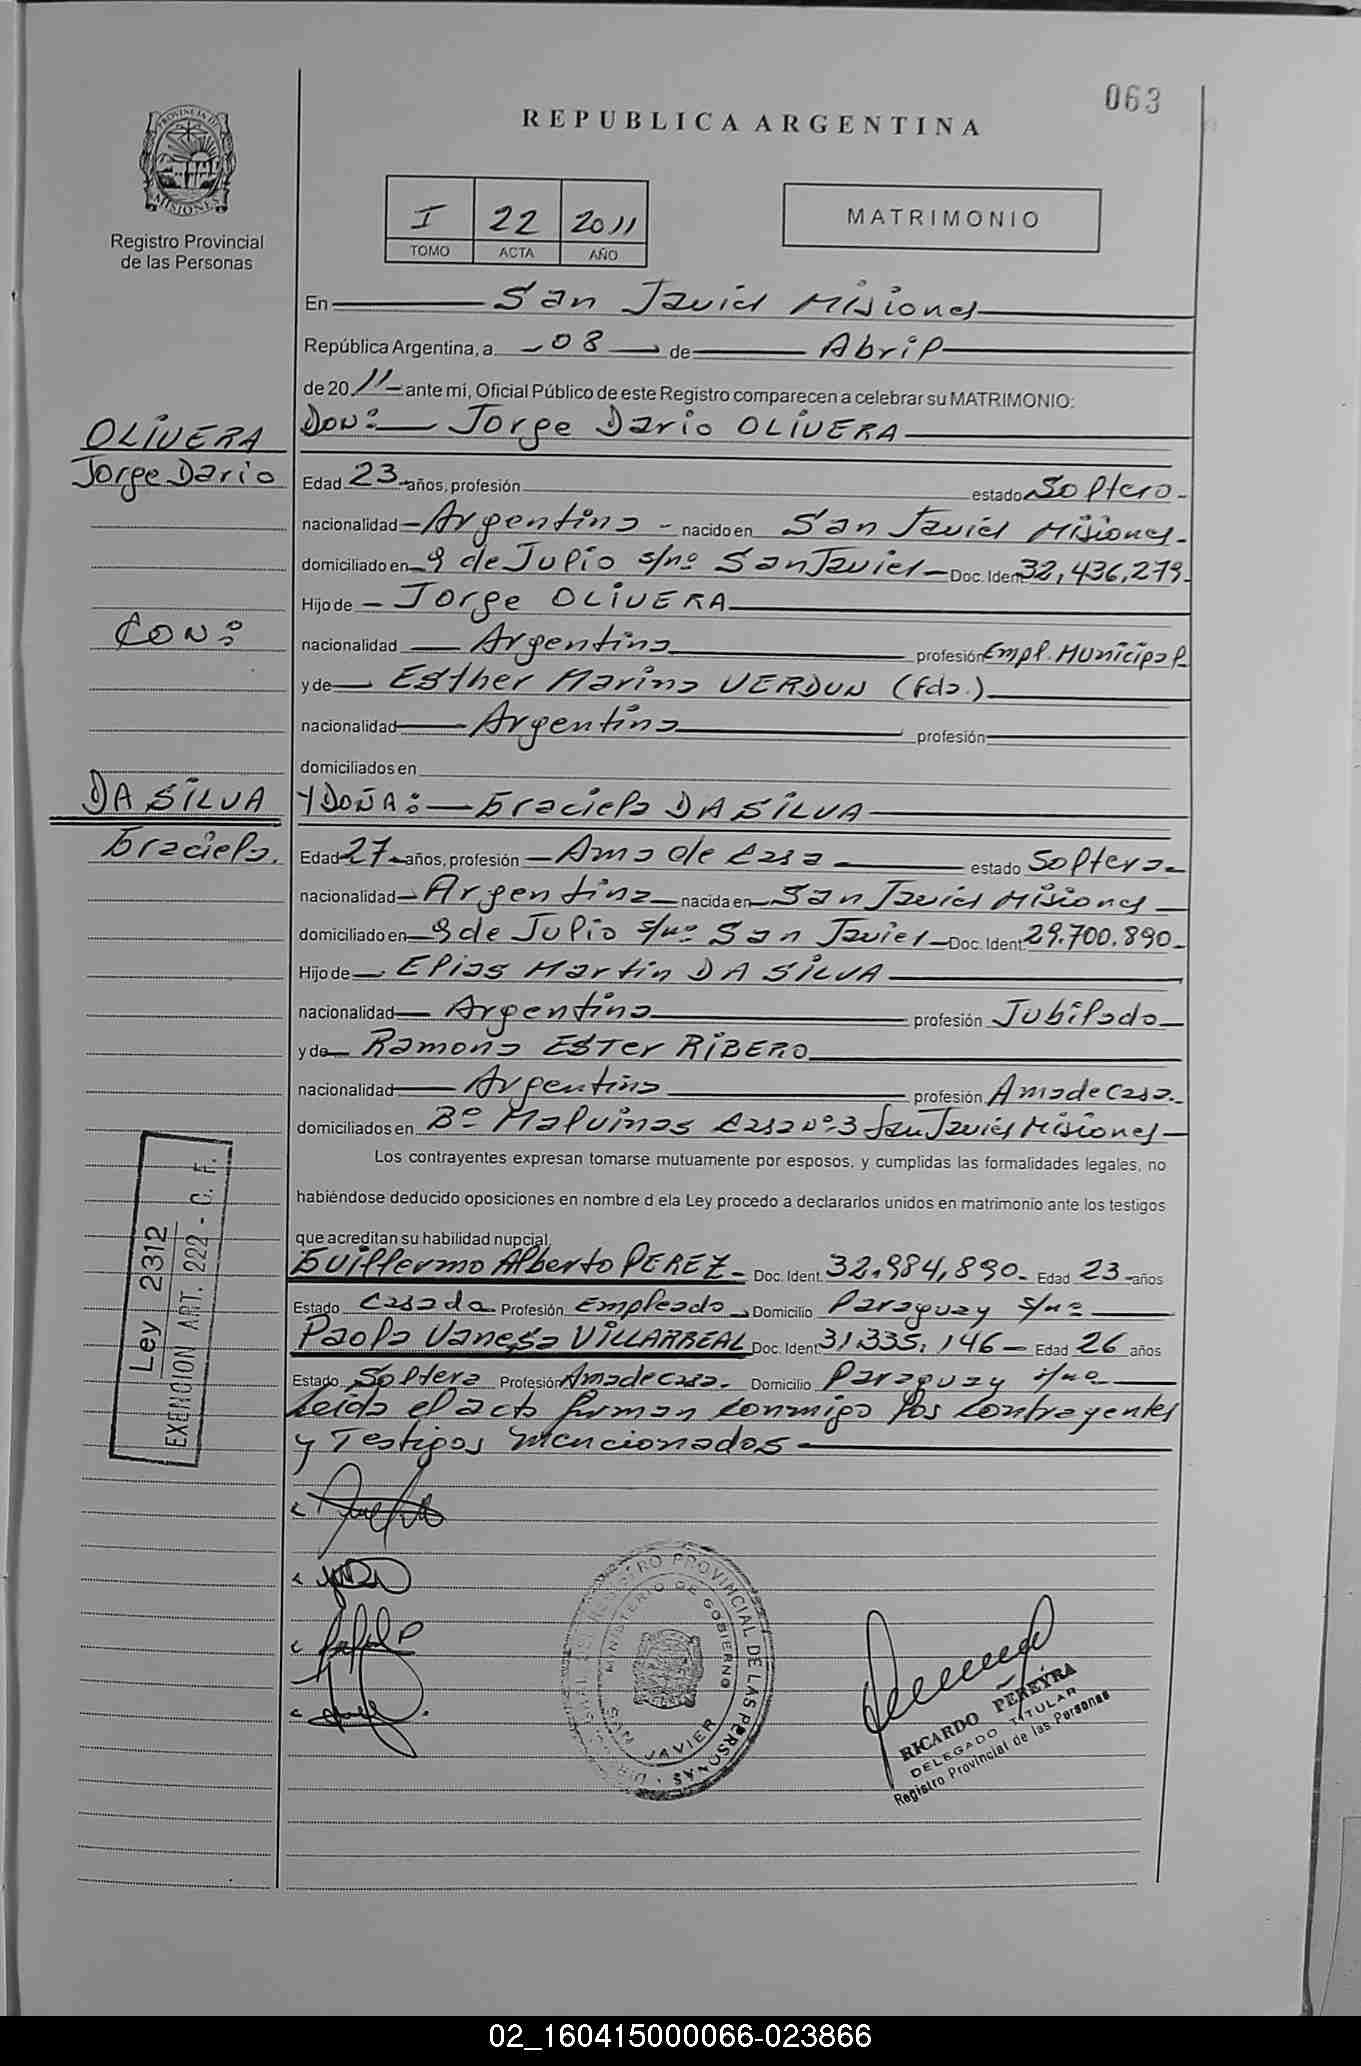 063
REPUBLICA ARGENTINA
PROVINCIA DE
MISIONES
Registro Provincial
de las Personas
I 22 2011
TOMO ACTA AÑO
MATRIMONIO
En San Javier Misiones
República Argentina, a 08 de Abril
de 2011 ante mi, Oficial Público de este Registro comparecen a celebrar su MATRIMONIO:
OLIVERA
Jorge Dario
Don: Jorge Dario OLIVERA
Edad 23 años, profesión estado Soltero
nacionalidad Argentina nacido en San Javier Misiones
domiciliado en 9 de Julio s/nº San Javier Doc. Ident. 32,436,279
Hijo de Jorge OLIVERA
CON:
nacionalidad Argentina profesión Empl. Municipal
y de Esther Marina VERDUN (fda.)
nacionalidad Argentina profesión
domiciliados en
DA SILVA
Graciela.
Y DOÑA: Graciela DA SILVA
Edad 27 años, profesión Ama de Casa estado Soltera
nacionalidad Argentina nacida en San Javier Misiones
domiciliado en 9 de Julio s/nº San Javier Doc. Ident. 29.700.890
Hijo de Elias Martin DA SILVA
nacionalidad Argentina profesión Jubilado
y de Ramona ESTer RIBERO
nacionalidad Argentina profesión Ama de Casa.
domiciliados en Bº Malvinas Casa Nº 3 San Javier Misiones
Los contrayentes expresan tomarse mutuamente por esposos, y cumplidas las formalidades legales, no
habiéndose deducido oposiciones en nombre d ela Ley procedo a declararlos unidos en matrimonio ante los testigos
que acreditan su habilidad nupcial
Guillermo Alberto PEREZ Doc. Ident. 32.984,890 Edad 23 años
Estado Casado Profesión Empleado Domicilio Paraguay s/nº
Paola Vanesa VILLARREAL Doc. Ident. 31.335.146 Edad 26 años
Estado Soltera Profesión Ama de casa. Domicilio Paraguay s/nº
Leida el acta firman conmigo los contrayentes
y Testigos mencionados
Ley 2312
EXENCION ART. 222 - C. F.
REGISTRO PROVINCIAL DE LAS PERSONAS
MINISTERIO DE GOBIERNO
SAN JAVIER
RICARDO PEREYRA
DELEGADO TITULAR
Registro Provincial de las Personas
02_160415000066-023866